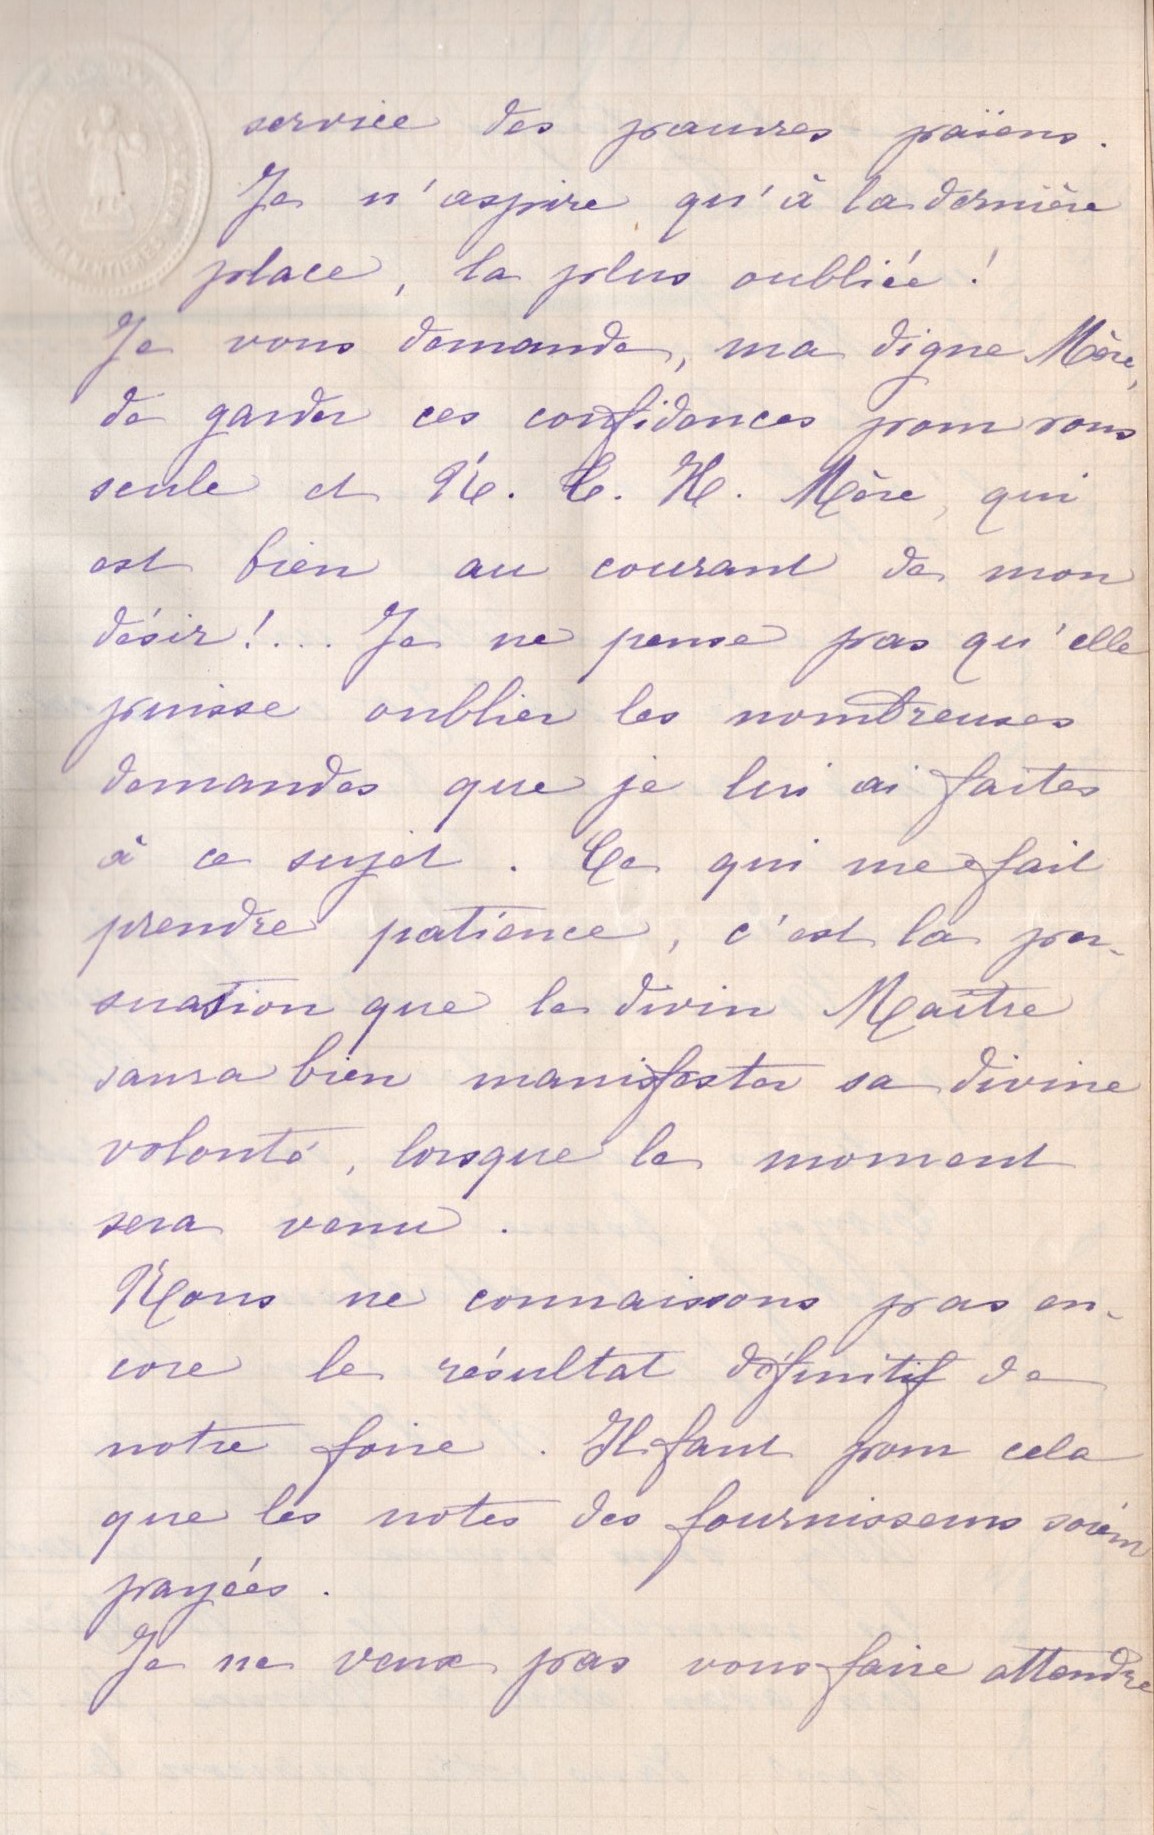 service des pauvres païens.
Je n'aspire qu'à la dernière
place, la plus oubliée !
Je vous demande, ma digne Mère,
de garder ces confidences pour vous
seule et N. T. H. Mère, qui
est bien au courant de mon
désir !... Je ne pense pas qu'elle
puisse oublier les nombreuses
demandes que je lui ai faites
à ce sujet. Ce qui me fait
prendre patience, c'est la per-
suasion que le divin Maître
saura bien manifester sa divine
volonté, lorsque le moment
sera venu.
Nous ne connaissons pas en-
core le résultat définitif de
notre foire. Il faut pour cela
que les notes des fournisseurs soient
payées.
Je ne veux pas vous faire attendre